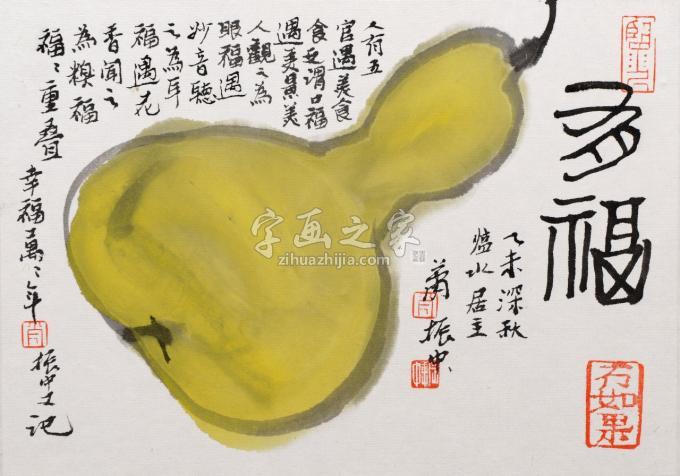 多福
乙未深秋
水居主
萧振中
人有五
官遇美食
食之谓口福
遇美景美
人觀之為
眼福遇
妙音聽
之為耳
福遇花
香聞之
為糗福
福々重叠
幸福萬々年
振中又记
如果
字画之家
zihuazhijia.com